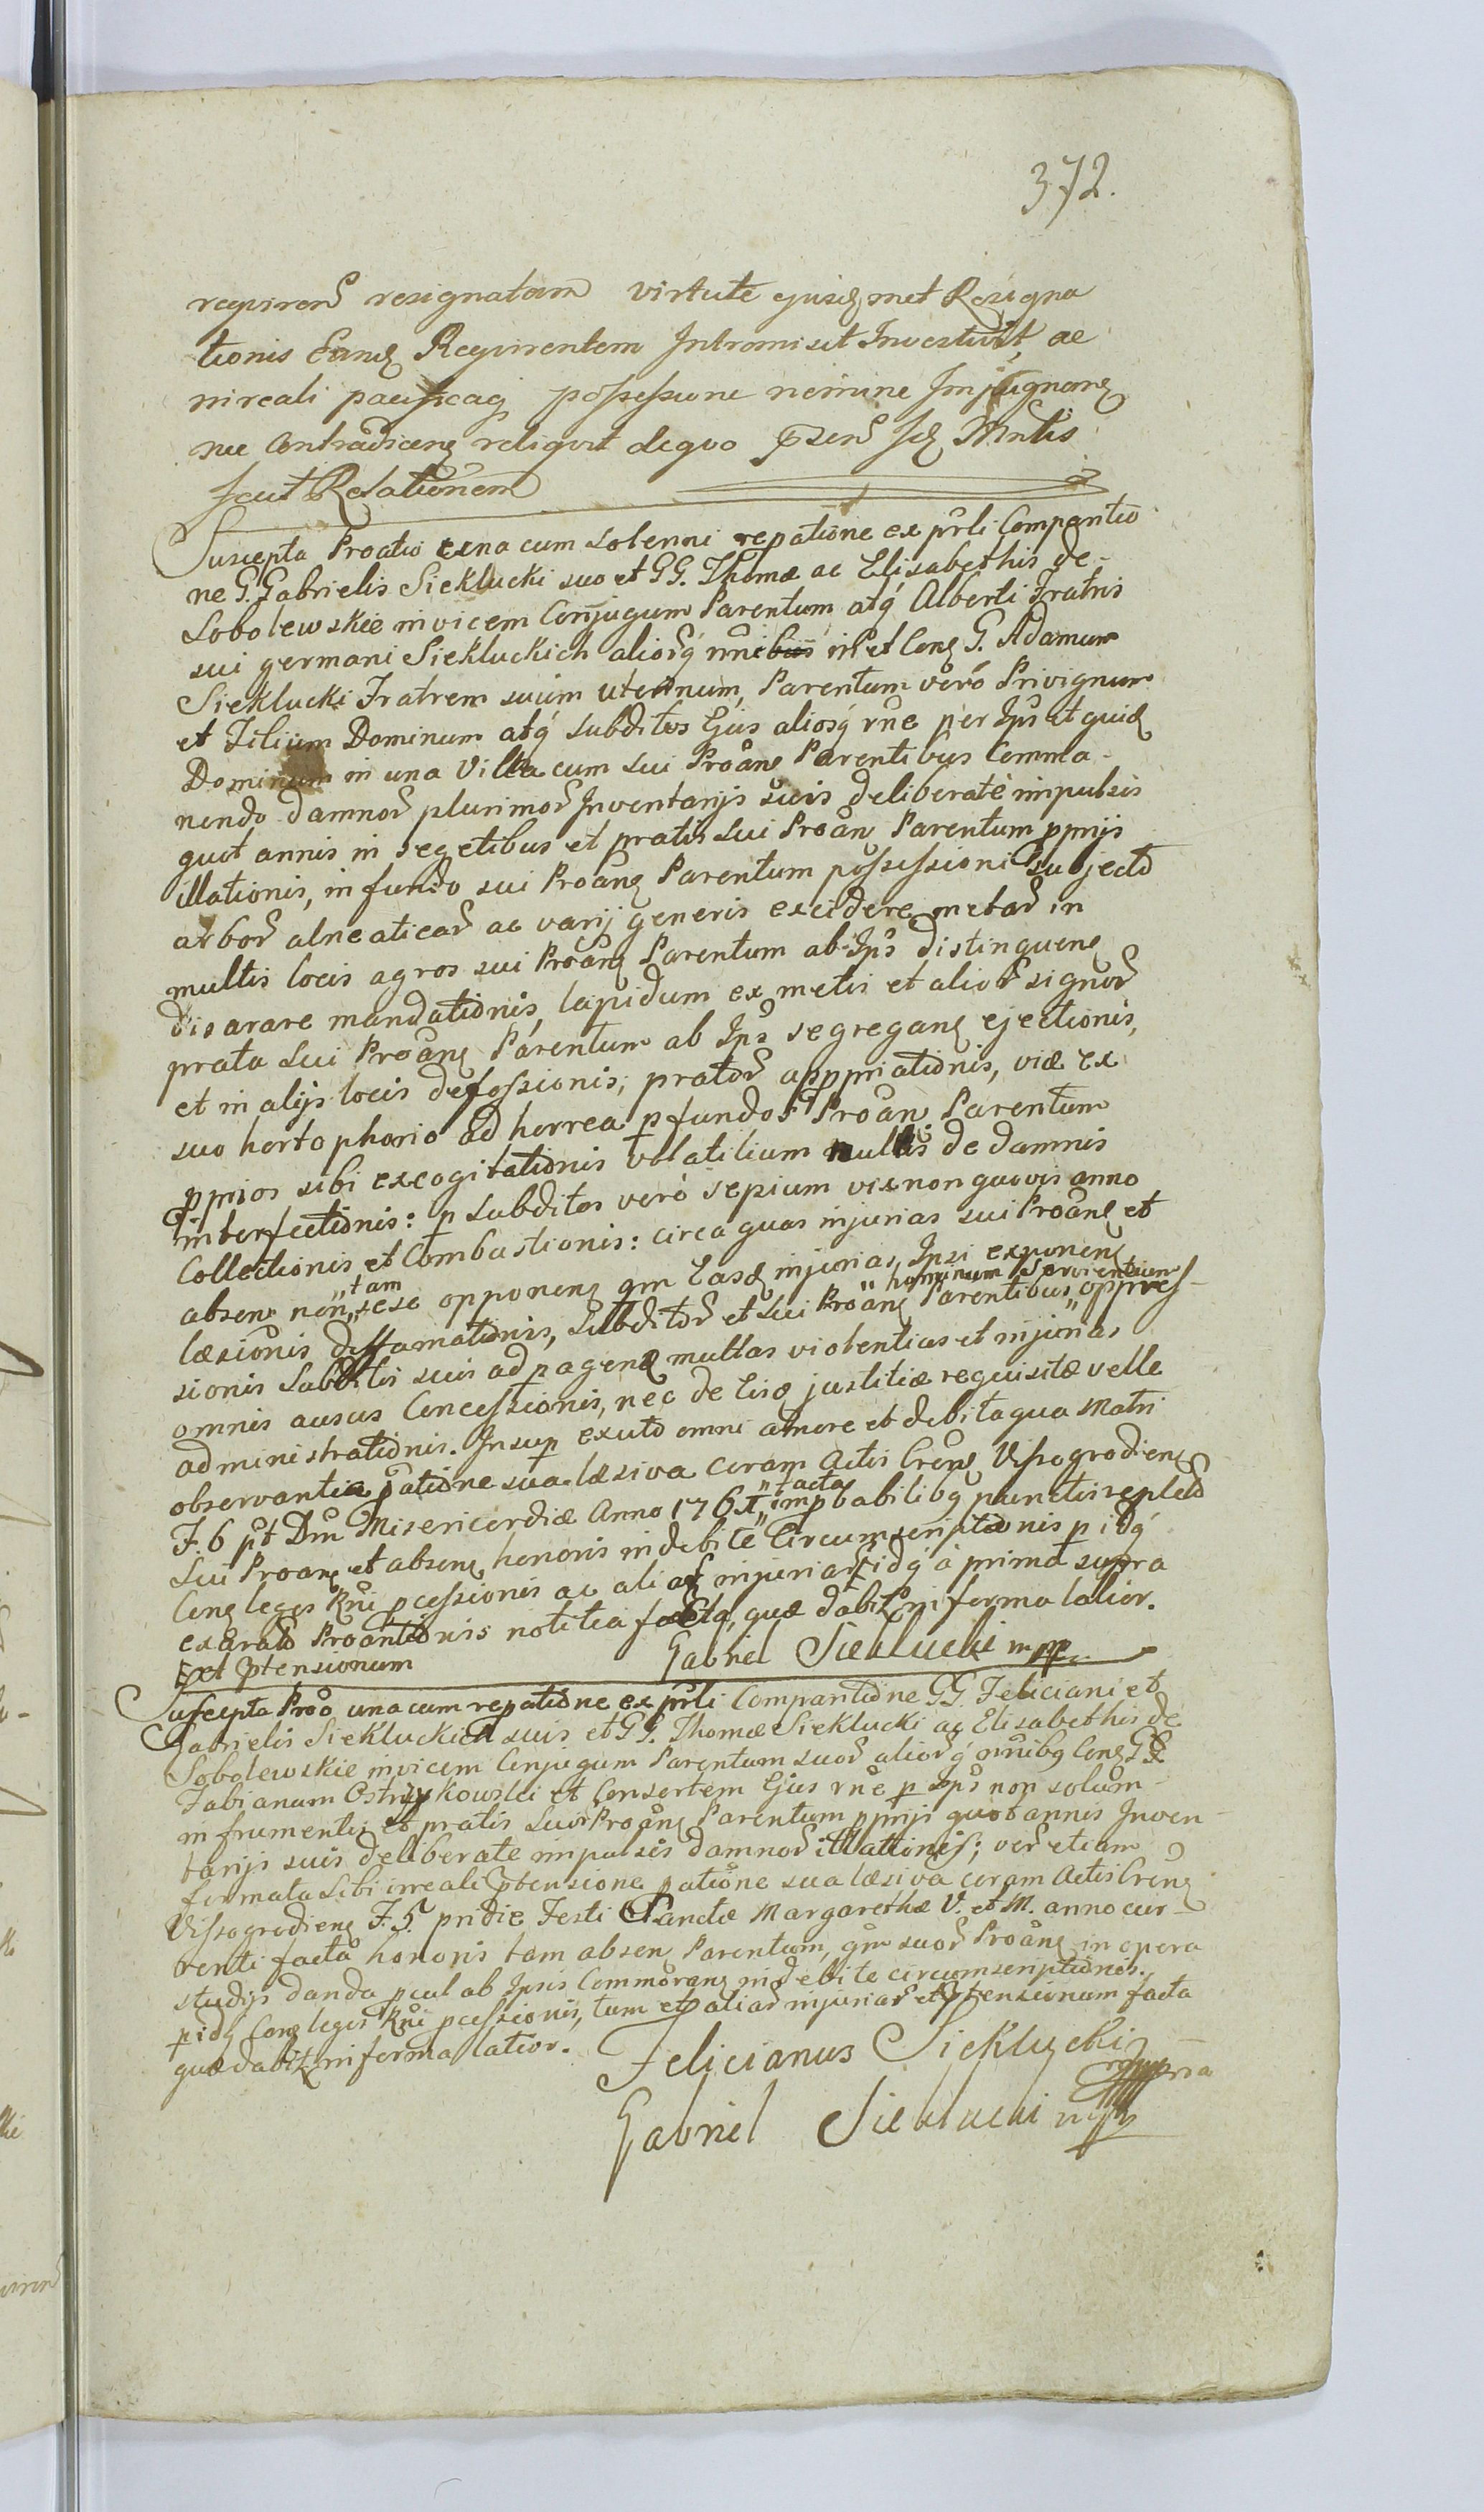 372.
requiren resignatam virtute ejusq met Resigna
tionis Eanq Requirentem Intromisit Investivit, ac
in reali pacificaq possessione nemine Impugnanq
nec Contradicenq reliquit de quo pnsen sq Mntis
fecit Relationem
Suscepta Proatio una cum solenni repatione ex pnrli Comparitio
ne G. Gabrielis Sieklucki suo et GG. Thomæ ac Elisabethis de
Sobolewskie invicem Conjugum Parentum atq Alberti Fratris
sui germani Siekluckich aliorq nnibus in et Conq G. Adamum
Sieklucki Fratrem suum uterinum, Parentum verò Privignum
et Filium Dominum atq subditos Ejus aliosq rne per Ips ut quiq
Dominum in una Villa cum sui Proanq Parentibus Comma-
nendo damnor plurimor Inventarijs suis deliberatè impulsis
quot annis in segetibus et pratis sui Proanq Parentum pprijs
illationis, in fundo sui Proanq Parentum possessioni subjecto
arbor alneaticar ac varij generis excidere metar in
multis locis agros sui Proanq Parentum ab Ips distinguenq
disarare mandationis, lapidum ex metis et alior signor
prata sui Proanq Parentum ab Ips segreganq ejectionis,
et in alijs locis defossionis; prator appropriationis, viæ ex
suo hortophorio ad horrea p fundos Proanq Parentum
pprios sibi excogitationis volatilium nullis de damnis
interfectionis: p subditos verò sepium vix non quovis anno
Collectionis et Combustionis: circa quas injurias sui Proanq et
absenq non „tam„ sese opponenq qm Easq injurias Ipsi exponenq
læsionis diffamationis, subditor et sui Proanq Parentibus „hominum servientium„ oppres-
sionis subditis suis ad pagenq multas violentias et injurias
omnis ausus Concessionis, nec de Eisq justitiæ requisitæ velle
administrationis. Insup exuto omni amore et debita qua Matri
observantia patione sua læsiva coram Actis Crens Vissogrodienq
F. 6 pt Dm Misericordiæ Anno 176 „facta„ impbabilibq punctis repleta
sui Proanq et absenq honoris indebitè Circumscriptionis p idq
Conq leges Rni pcessionis ac aliar injuriar idq à prima supra
exarato Proantionis notitia facta, quæ dabit in forma latior.
Ext ptensionum Gabriel Sieklucki mpp
Suscepta Proo una cum repatione ex pnrli Comparitione GG. Feliciani et
Gabrielis Siekluckich suis et GG. Thomæ Sieklucki ac Elisabethis de
Sobolewskie invicem Conjugum Parentum suor aliorq nnibq Conq GG
Fabianum Ostrzykowski et Consortem Ejus rne p Ips non solum
in frumentis et pratis suor Proanq Parentum pprijs quot annis Inven-
tarijs suis deliberate impulsis damnor illationis; ver etiam
formata sibi irreali ptensione patione sua læsiva coram Actis Crens
Vissogrodienq F. 5. pridie Festi Sanctæ Margarethæ V. et M. anno cur-
renti facta honoris tam absenq Parentum, qm suor Proanq in opera
studijs danda pcul ab Ipsis Commoranq indebite circumscriptionis.
pidq Conq leges Rni pcessionis, tum et aliar injuriar et ptensionum facta
quæ dabit in forma latior. Felicianus Sieklucki
mppria
Gabriel Sieklucki mpp